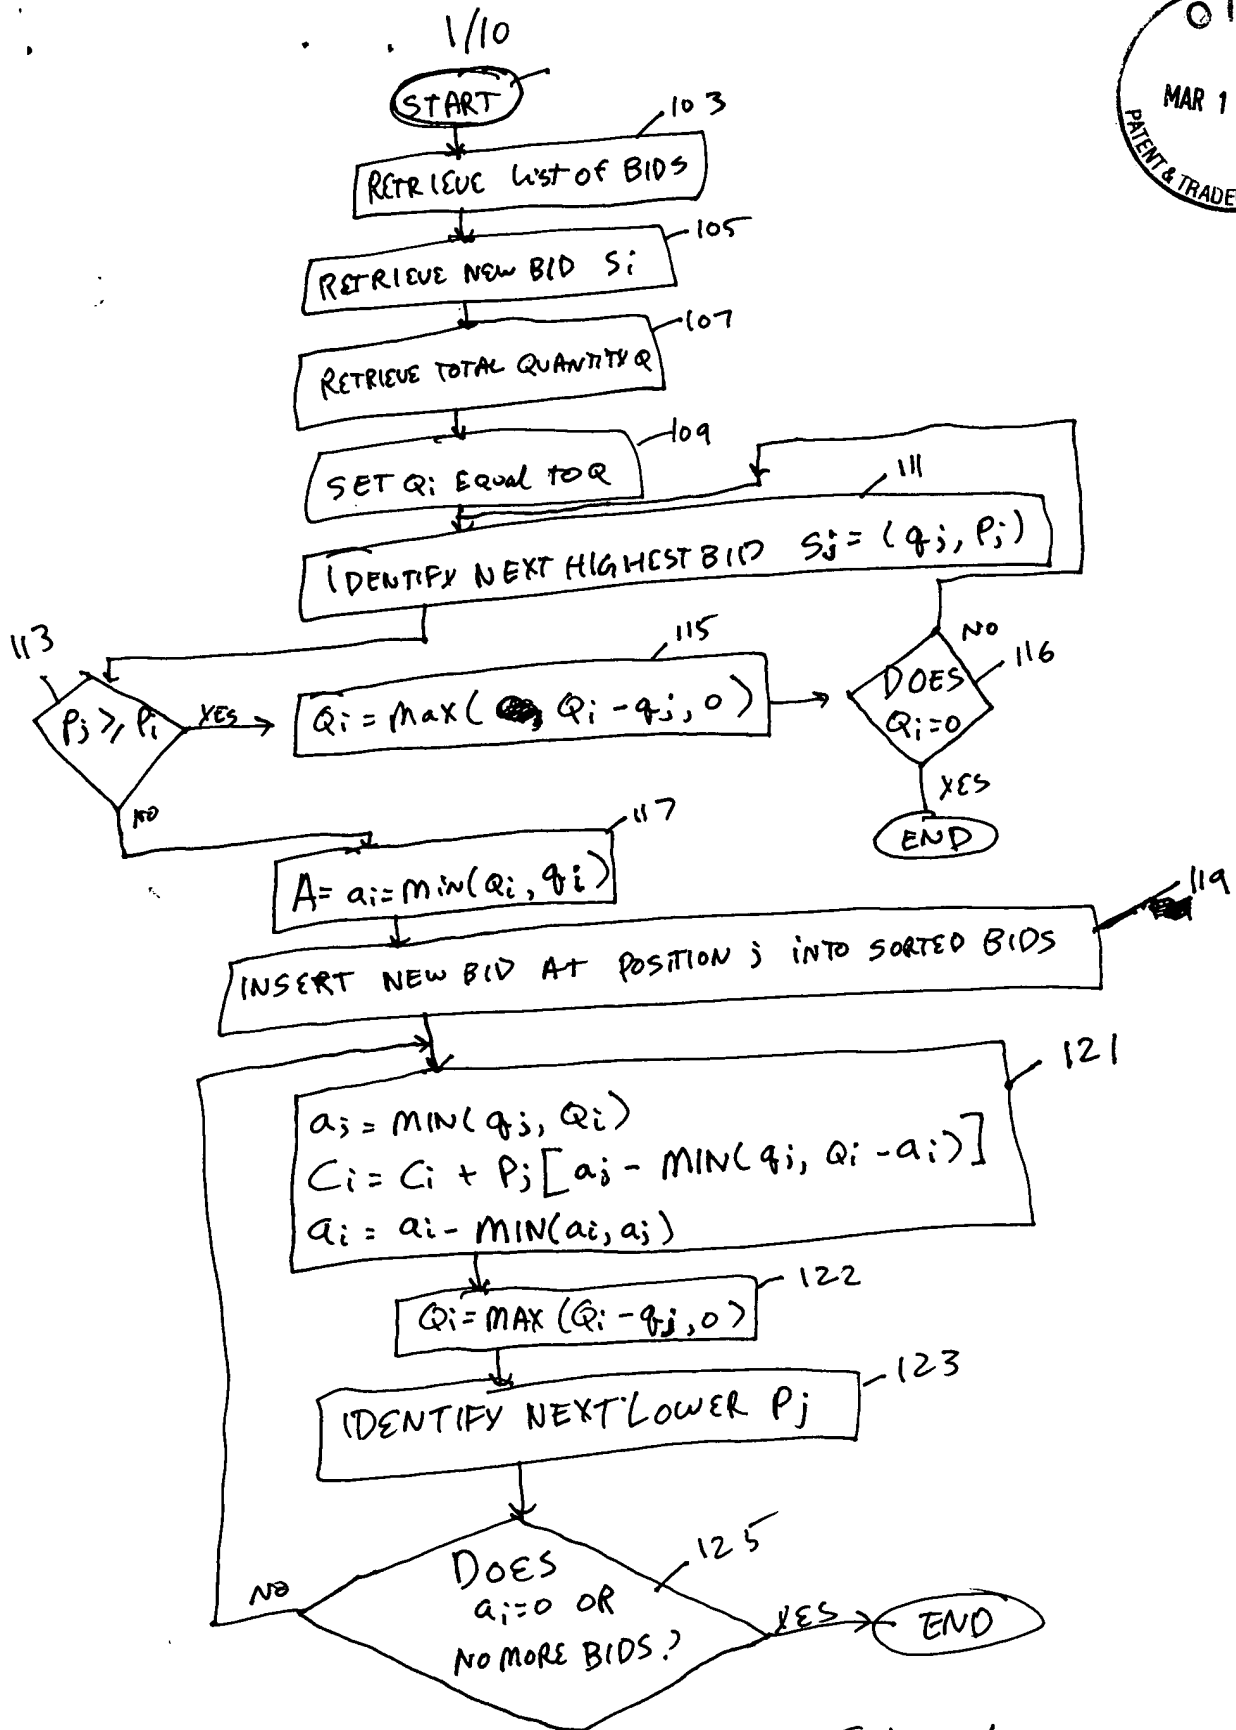 1/10
O I
MAR 1
PATENT & TRADE
START
103
RETRIEVE List of BIDS
105
RETRIEVE NEW BID Si
107
RETRIEVE TOTAL QUANTITY Q
109
SET Qi Equal TO Q
111
IDENTIFY NEXT HIGHEST BID Sj = (qj, Pj)
113
Pj ≥ Pi
YES
NO
115
Qi = max( Qi - qj, 0 )
116
NO
DOES
Qi=0
YES
END
117
A= ai= min(Qi, qi)
119
INSERT NEW BID AT POSITION j INTO SORTED BIDS
121
aj = MIN(qj, Qi)
Ci = Ci + Pj [aj - MIN(qj, Qi - ai)]
ai = ai - MIN(ai, aj)
122
Qi = MAX (Qi - qj, 0)
123
IDENTIFY NEXT LOWER Pj
125
DOES
ai=0 OR
NO MORE BIDS?
NO
YES
END